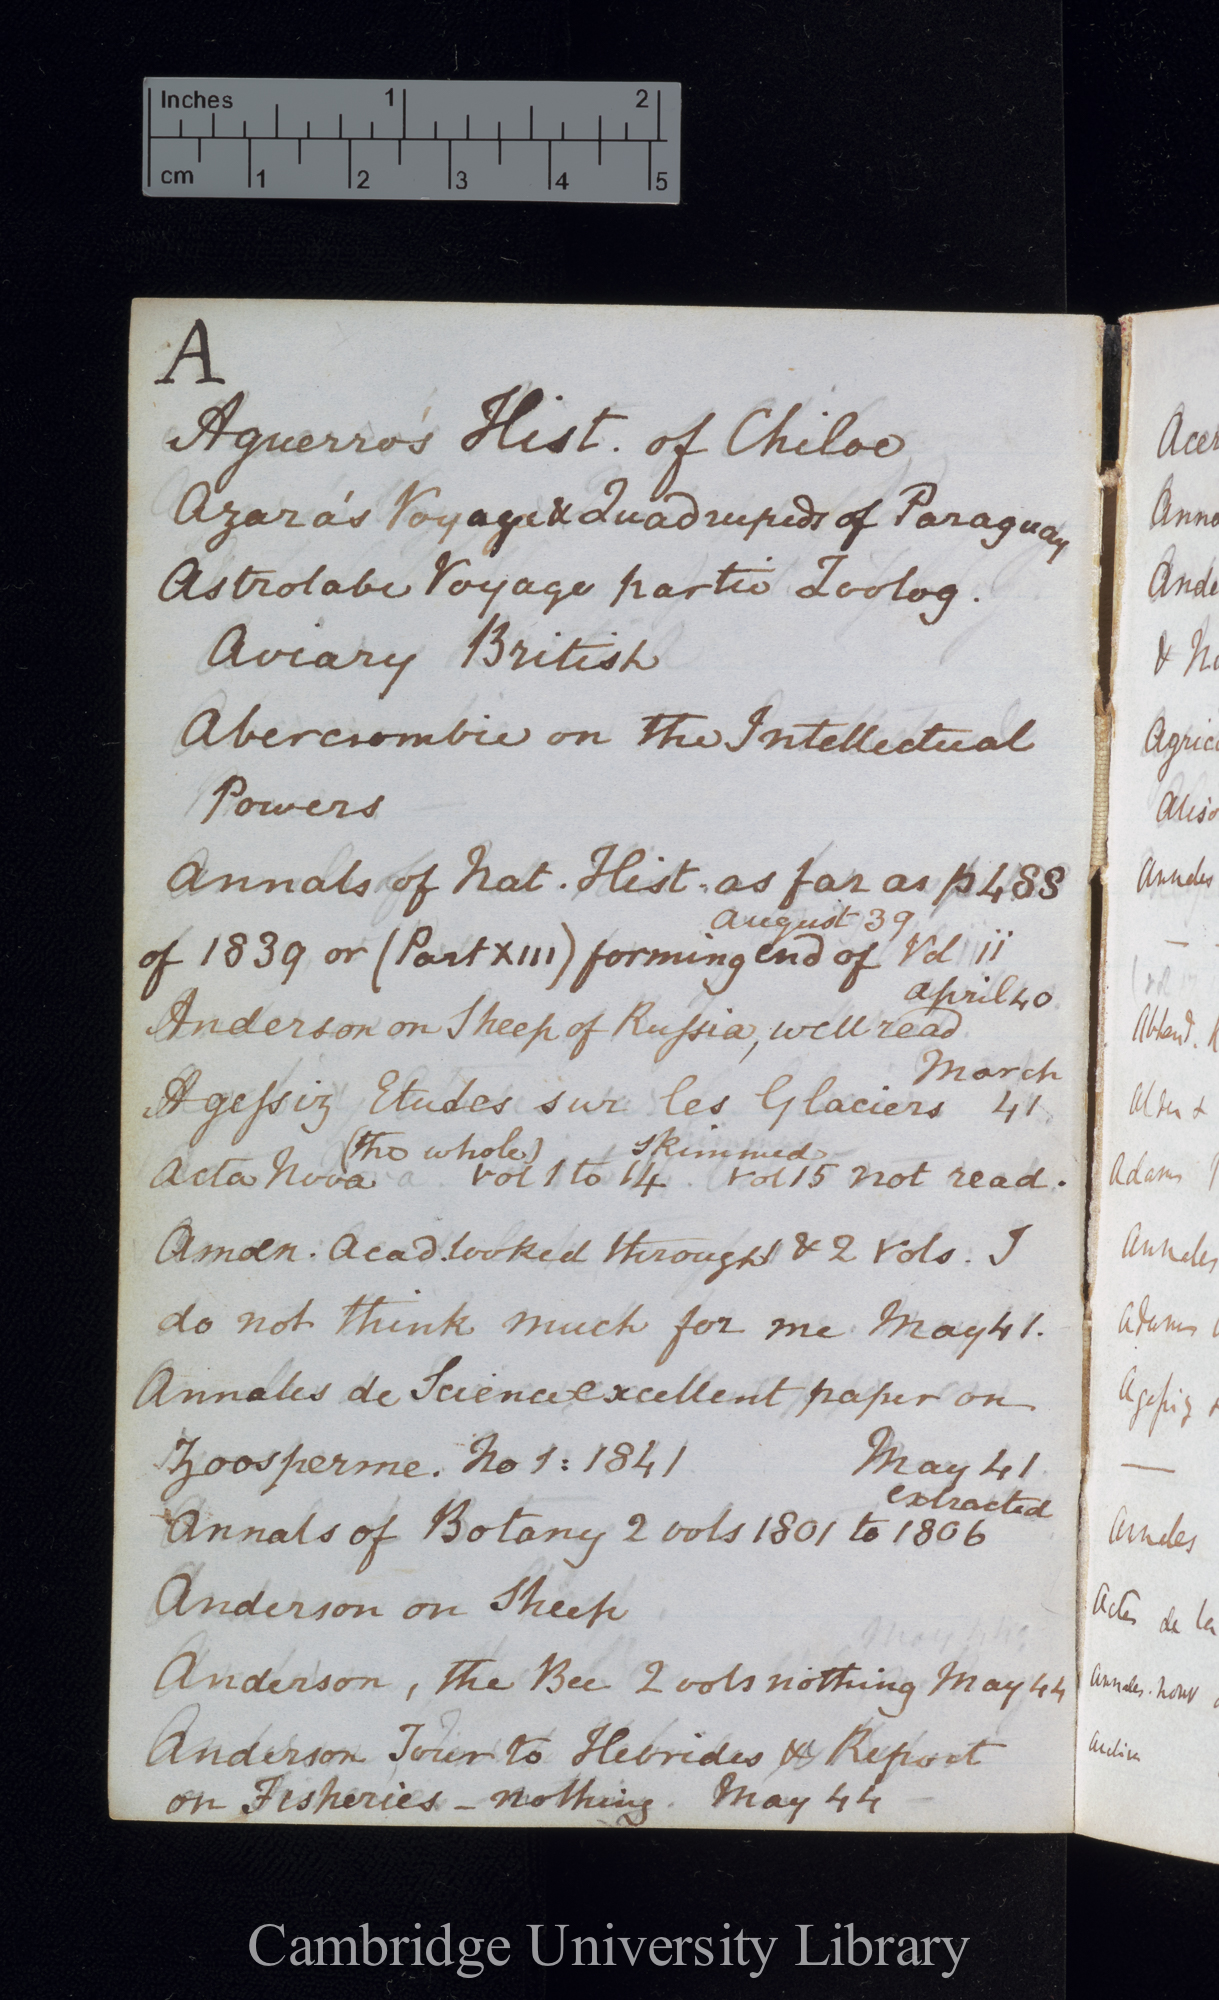 Inches 1 2
cm 1 2 3 4 5
A
Aguerro's Hist. of Chiloe
Azara's Voyage & Quadrupeds of Paraguay
Astrolabe Voyage partie Zoolog.
Aviary British
Abercrombie on the Intellectual
Powers
Annals of Nat. Hist. as far as p 488
August 39
of 1839 or (Part XIII) forming end of Vol ii
April 40
Anderson on Sheep of Russia, well read
March
Agessiz Etudes sur les Glaciers 41
(the whole) skimmed
Acta Nova vol 1 to 14 vol 15 not read.
Amoen. Acad. looked through & 2 vols. I
do not think much for me May 41.
Annales de Science excellent paper on
Zoosperme. No 1: 1841 May 41
extracted
Annals of Botany 2 vols 1801 to 1806
Anderson on Sheep
Anderson, the Bee 2 vols nothing May 44
Anderson Tour to Hebrides & Report
on Fisheries - nothing. May 44
Annales
Adams
Annales
Adams
Annales
Actes de la
Annales. nouv
Cambridge University Library